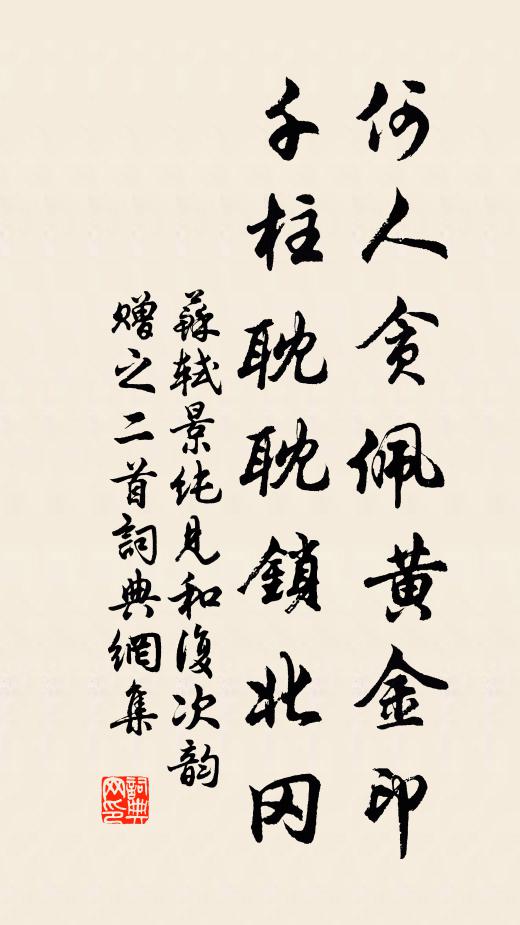 何人貪佩黃金印
千柱耽耽鎖北冈
蘇軾景純見和復次韻
贈之二首詞典網集
詞典网印